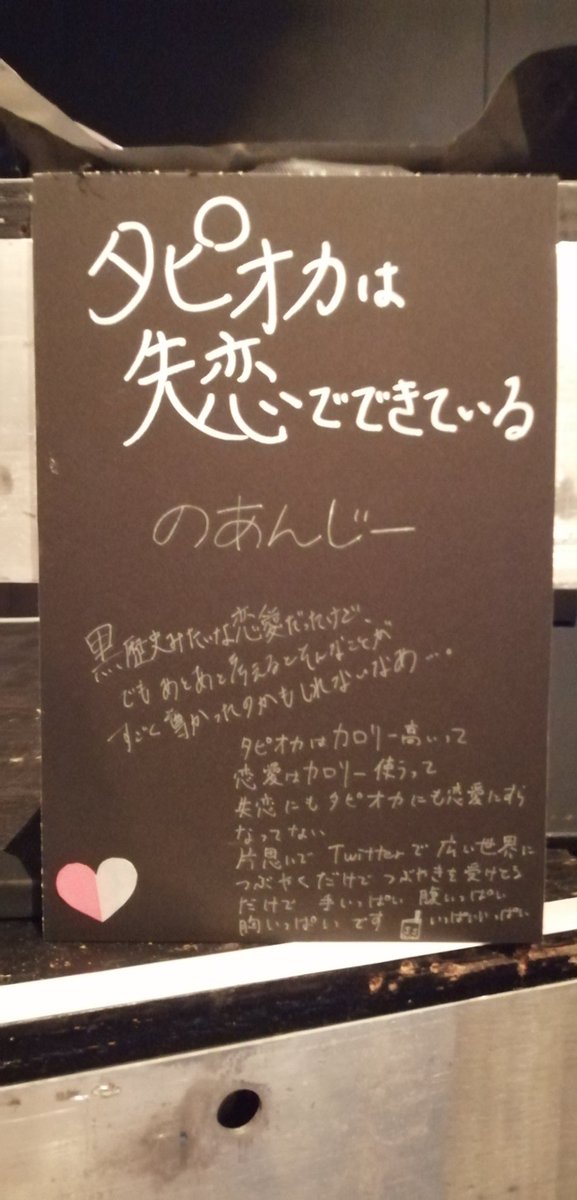 タピオカは
失恋でできている
のあんじー
黒歴史みたいな恋愛だったけど、
でもあとあと考えるとそんなことが
すごく尊かったのかもしれないなあ…。
タピオカはカロリー高いって
恋愛はカロリー使うって
失恋にもタピオカにも恋愛にすら
なってない
片思いで Twitterで広い世界に
つぶやくだけでつぶやきを受けてる
だけで 手いっぱい 腹いっぱい
胸いっぱいです いっぱいいっぱい